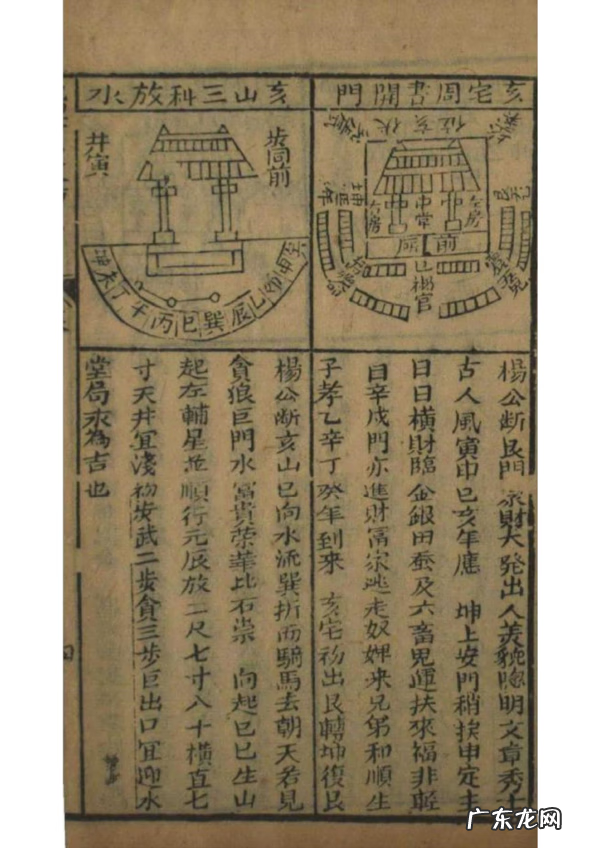 亥宅周書開門
伏亥位
中堂
前
巳楊宮
楊公斷艮門家財大發出人美貌聰明文章秀士
古人風寅申巳亥年應 坤上安門稍挨申定主
日日橫財臨金銀田蚕及六畜鬼運扶來福非輕
目辛戍門亦進財冨家逃走奴婢來兄弟和順生
子孝乙辛丁癸年到來 亥宅初出艮轉坤復艮
亥山三科放水
步同前
井寅
甲卯乙辰巽巳丙午丁未坤
楊公斷亥山巳向水流巽折而騎馬去朝天若見
貪狼巨門水冨貴荣華比石崇 向起巳巳生山
起左輔星並順行元辰放二尺七寸八十橫直七
寸天井宜淺初步武二步貪三步巨出口宜迎水
堂局永為吉也
广东龙网